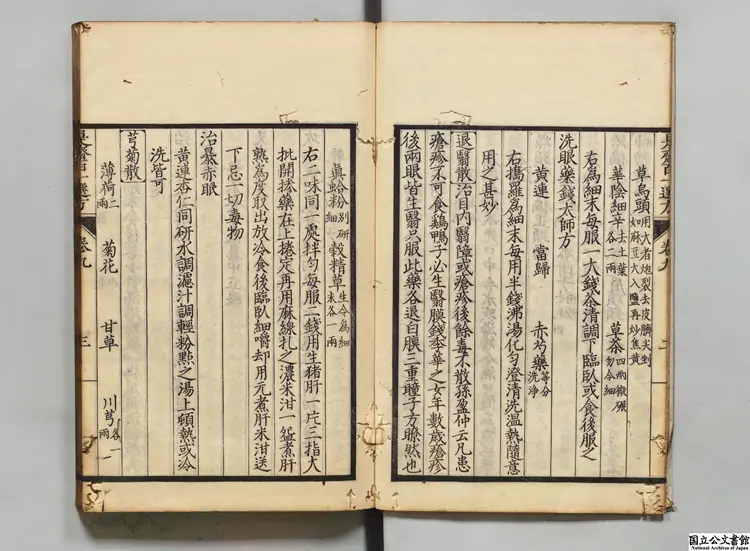 草烏頭用大者炮裂去皮臍尖剉如麻豆大入鹽再炒焦黄
華陰細辛去土葉各二兩 草茶四兩微碾勿令細
右為細末每服一大錢茶清調下臨臥或食後服之
洗眼藥錢大師方
黄連 當歸 赤芍藥等分洗淨
右擣羅為細末每用半錢沸湯化匀澄清洗温熱隨意
用之甚妙
退翳散治目内翳障或瘡疹後餘毒不散孫盈仲云凡患
瘡疹不可食鷄鴨子必生翳膜錢季華之女年數歳瘡疹
後兩眼皆生翳只服此藥各退白膜三重瞳子方瞭然也
是齋百一選方 卷九 二
真蛤粉別研細 穀精草生令為細末各一兩
右二味同一處拌匀每服二錢用生猪肝一片三指大
批開摻藥在上捲定再用麻線扎之濃米泔一盌煮肝
熟為度取出放冷食後臨臥細嚼却用元煮肝米泔送
下忌一切毒物
治暴赤眼
黄連杏仁同研水調濾汁調輕粉點之湯上頓熱或冷
洗皆可
芎菊散
薄荷二兩 菊花 甘草 川芎各一兩一
是齋百一選方 卷九 三
国立公文書館
National Archives of Japan